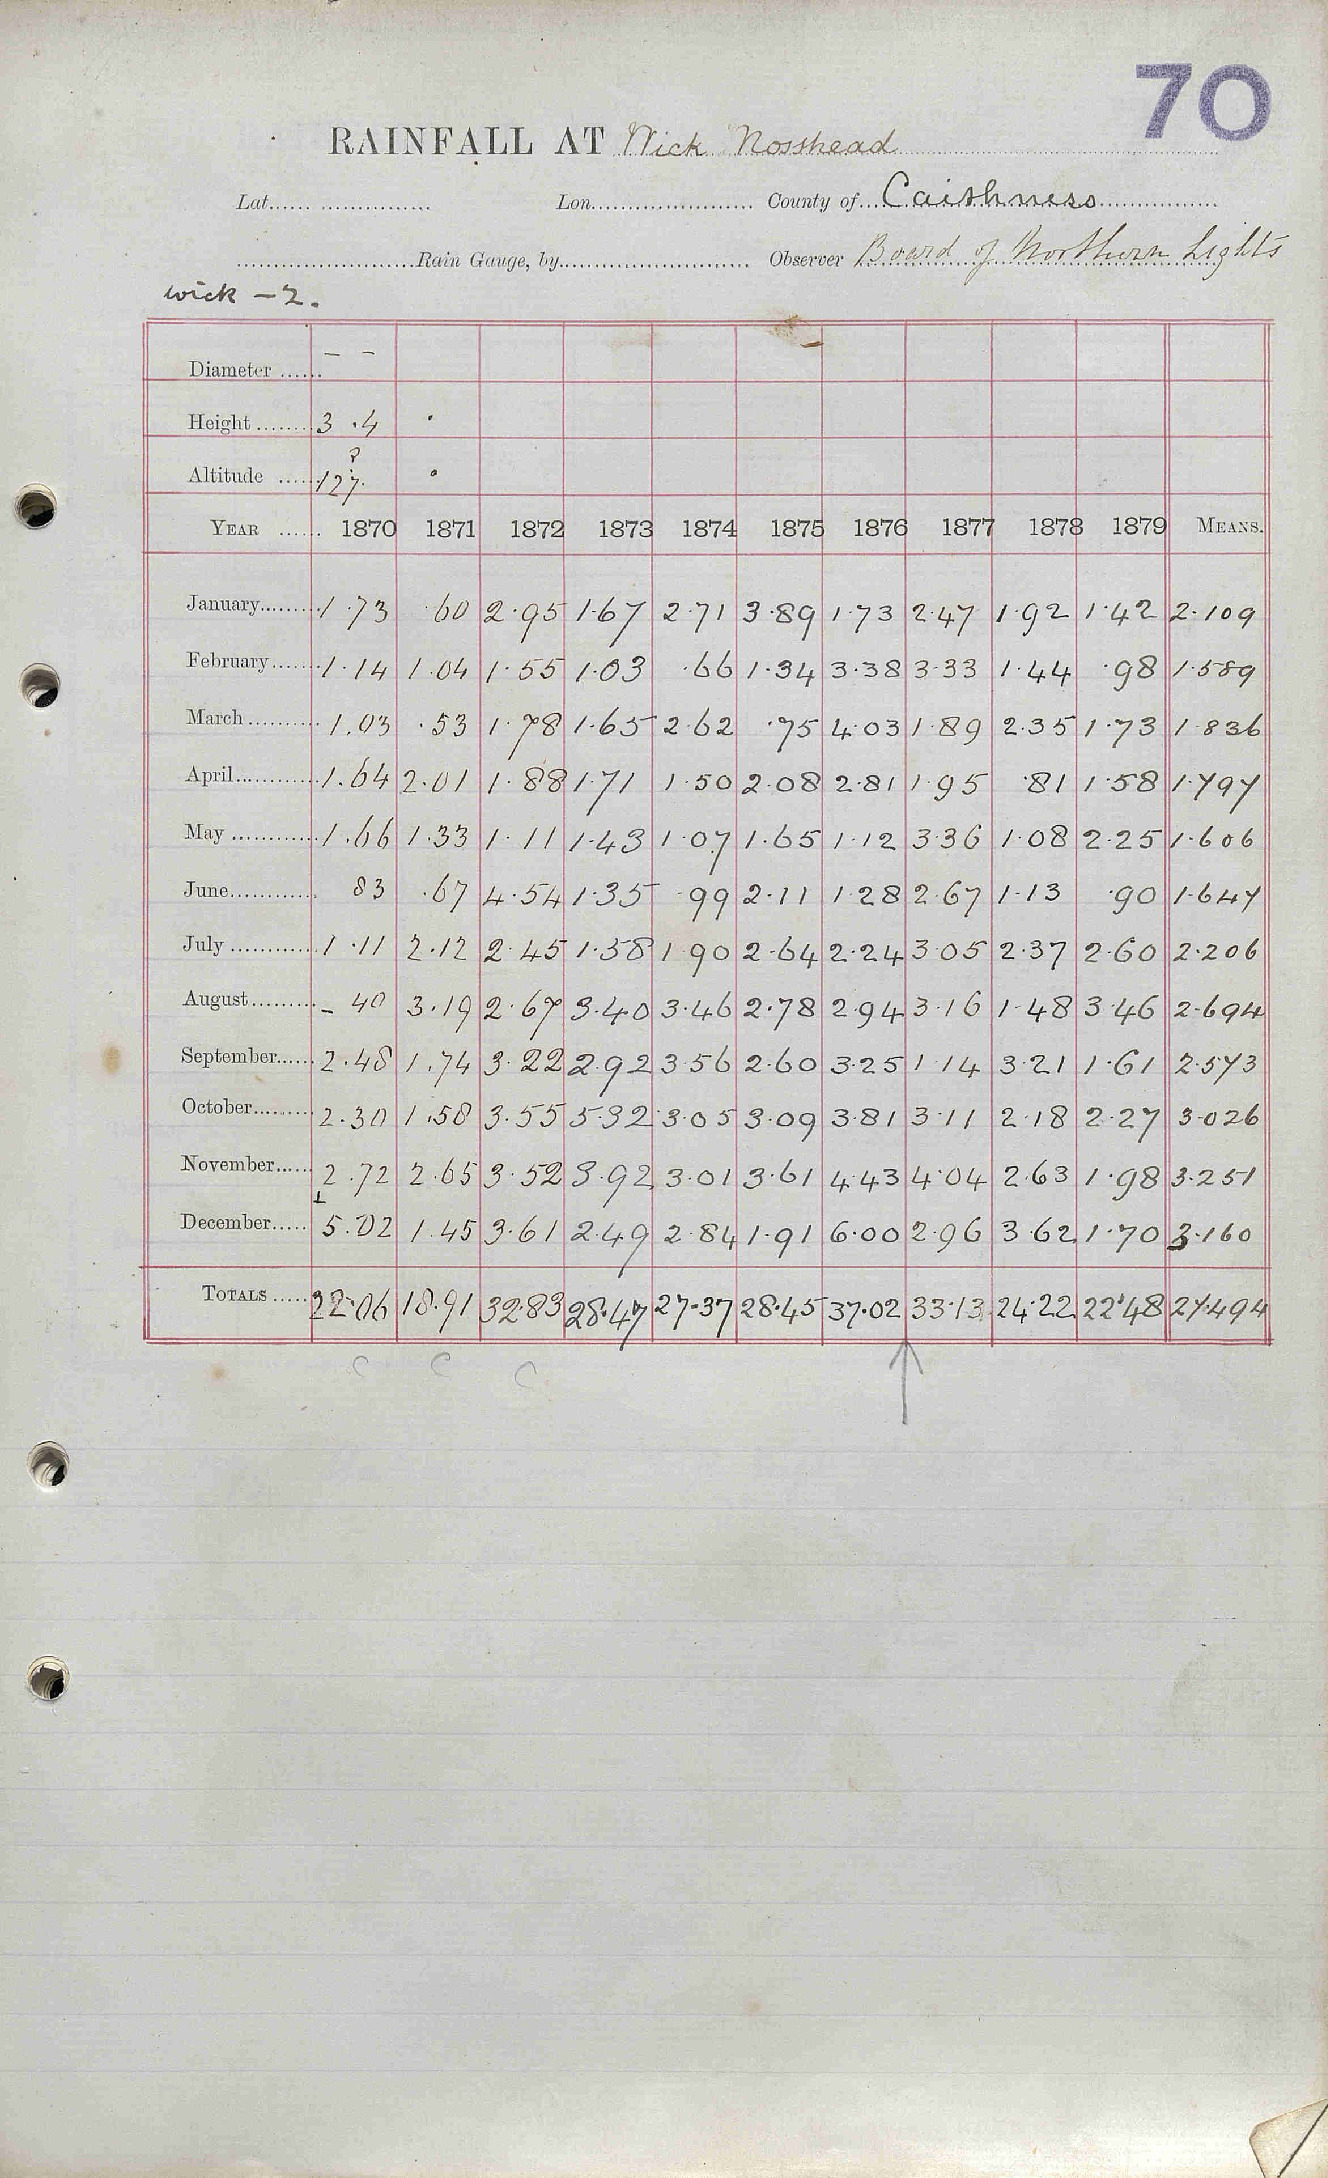 70
RAINFALL AT Wick Nosshead
Lat. Lon. County of Caithness
Rain Gauge, by Observer Board of Northern Lights
Wick - 2.
Diameter - -
Height 3 .4
Altitude 127 ?
YEAR 1870 1871 1872 1873 1874 1875 1876 1877 1878 1879 MEANS.
January 1.73 .60 2.95 1.67 2.71 3.89 1.73 2.47 1.92 1.42 2.109
February 1.14 1.04 1.55 1.03 .66 1.34 3.38 3.33 1.44 .98 1.589
March 1.03 .53 1.78 1.65 2.62 .75 4.03 1.89 2.35 1.73 1.836
April 1.64 2.01 1.88 1.71 1.50 2.08 2.81 1.95 .81 1.58 1.797
May 1.66 1.33 1.11 1.43 1.07 1.65 1.12 3.36 1.08 2.25 1.606
June 83 .67 4.54 1.35 .99 2.11 1.28 2.67 1.13 .90 1.647
July 1.11 2.12 2.45 1.58 1.90 2.64 2.24 3.05 2.37 2.60 2.206
August - 40 3.19 2.67 3.40 3.46 2.78 2.94 3.16 1.48 3.46 2.694
September 2.48 1.74 3.22 2.92 3.56 2.60 3.25 1.14 3.21 1.61 2.573
October 2.30 1.58 3.55 5.32 3.05 3.09 3.81 3.11 2.18 2.27 3.026
November 2.72 2.65 3.52 3.92 3.01 3.61 4.43 4.04 2.63 1.98 3.251
December 5.02 1.45 3.61 2.49 2.84 1.91 6.00 2.96 3.62 1.70 3.160
TOTALS 22.06 18.91 32.83 28.47 27.37 28.45 37.02 33.13 24.22 22.48 27.494
C C C